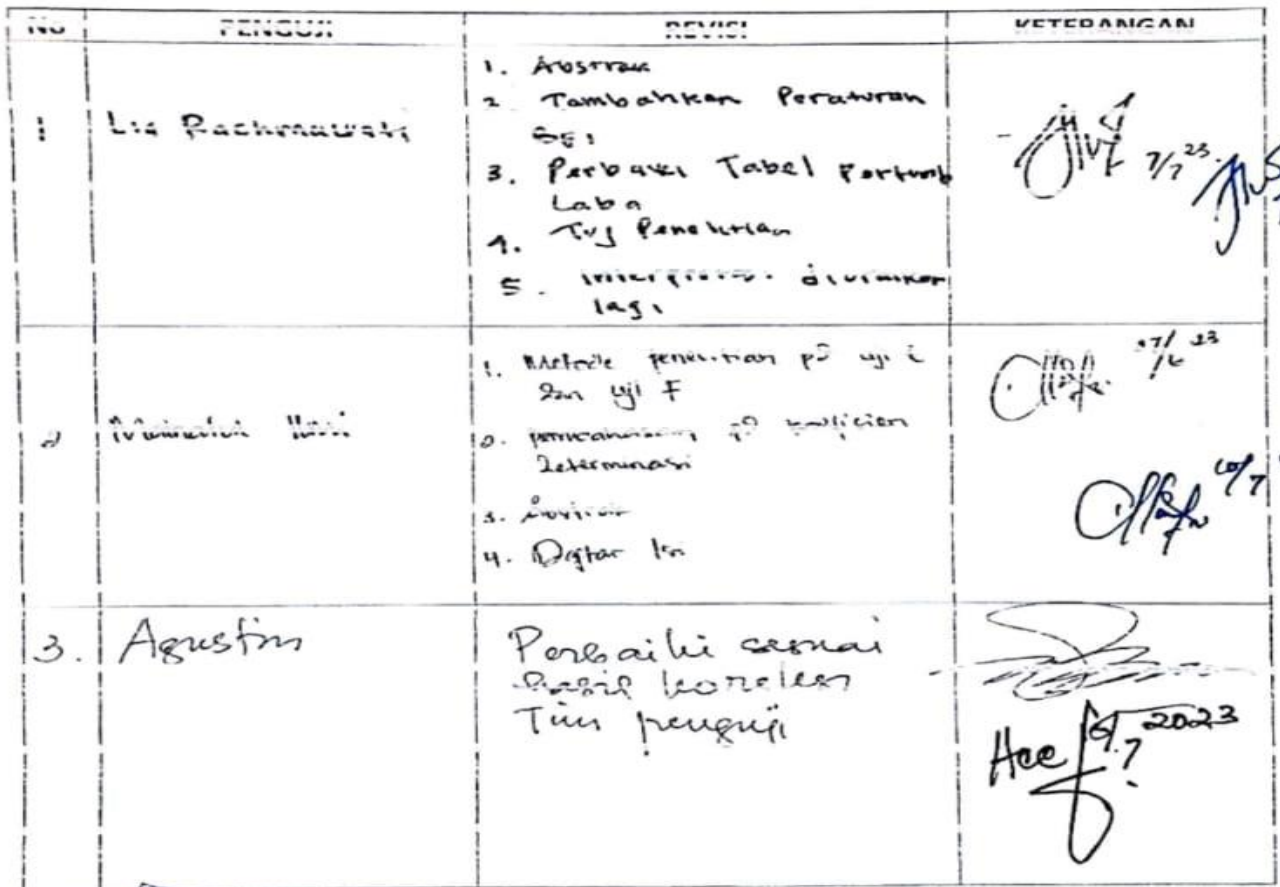 No PENGUJI REVISI KETERANGAN
1 Lia Rachmawati
1. Abstrak
2 Tambahkan Peraturan
BEI
3. Perbaiki Tabel Pertumb
Laba
4. Tuj Penelitian
5. diuraikan
lagi
7/7 23
2
1. Metode penelitian pd uji t
dan uji F
2. pd koefisien
Determinasi
3. Abstrak
4. Daftar Isi
27/6 23
10/7
3. Agustin
Perbaiki sesuai
hasil koreksi
Tim penguji
Acc
7 2023